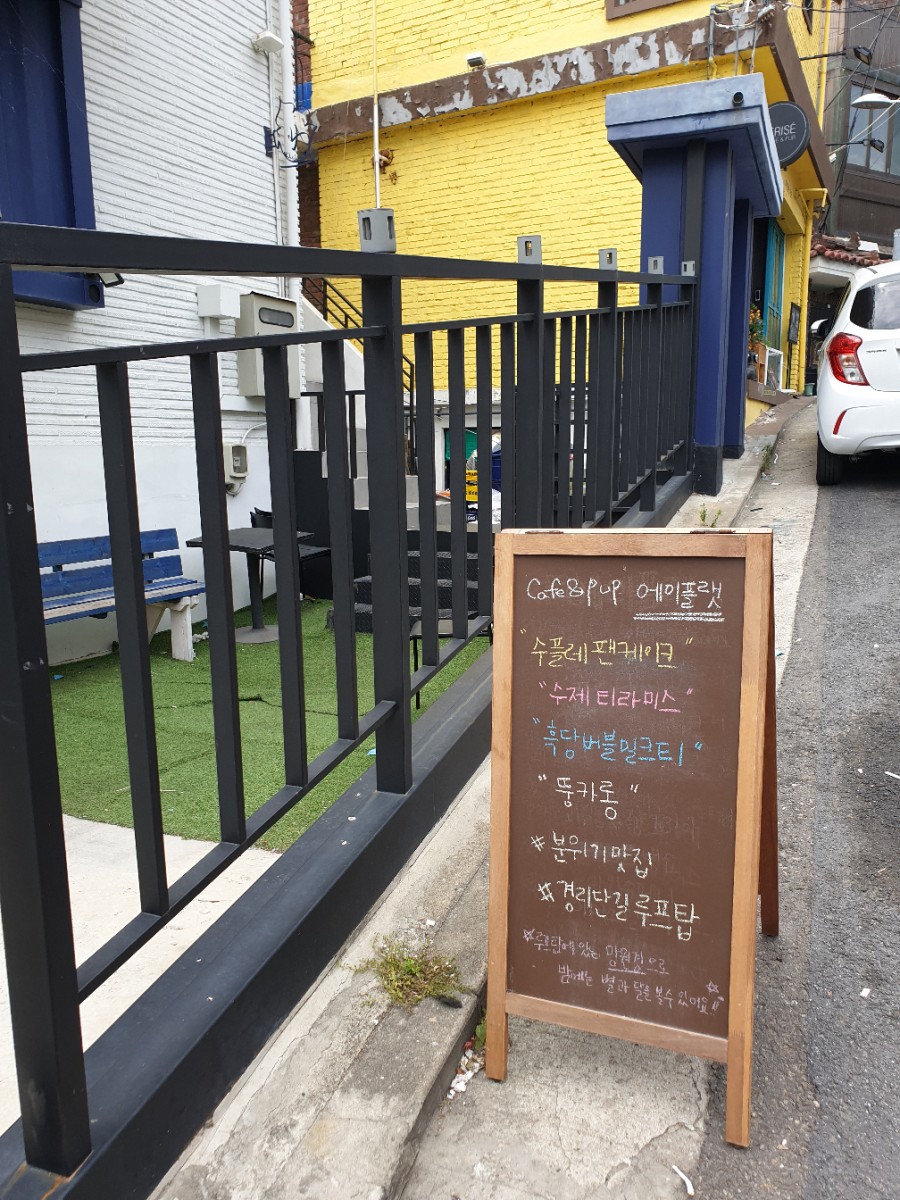 RISÉ
& PUB
Cafe&PUP 에이플랫
"수플레 팬케이크"
"수제 티라미스"
"흑당버블밀크티"
"뚱카롱"
#분위기맛집
#경리단길 루프탑
루프탑에 있는 망원경으로
밤에는 별과 달을 볼수 있어요!!